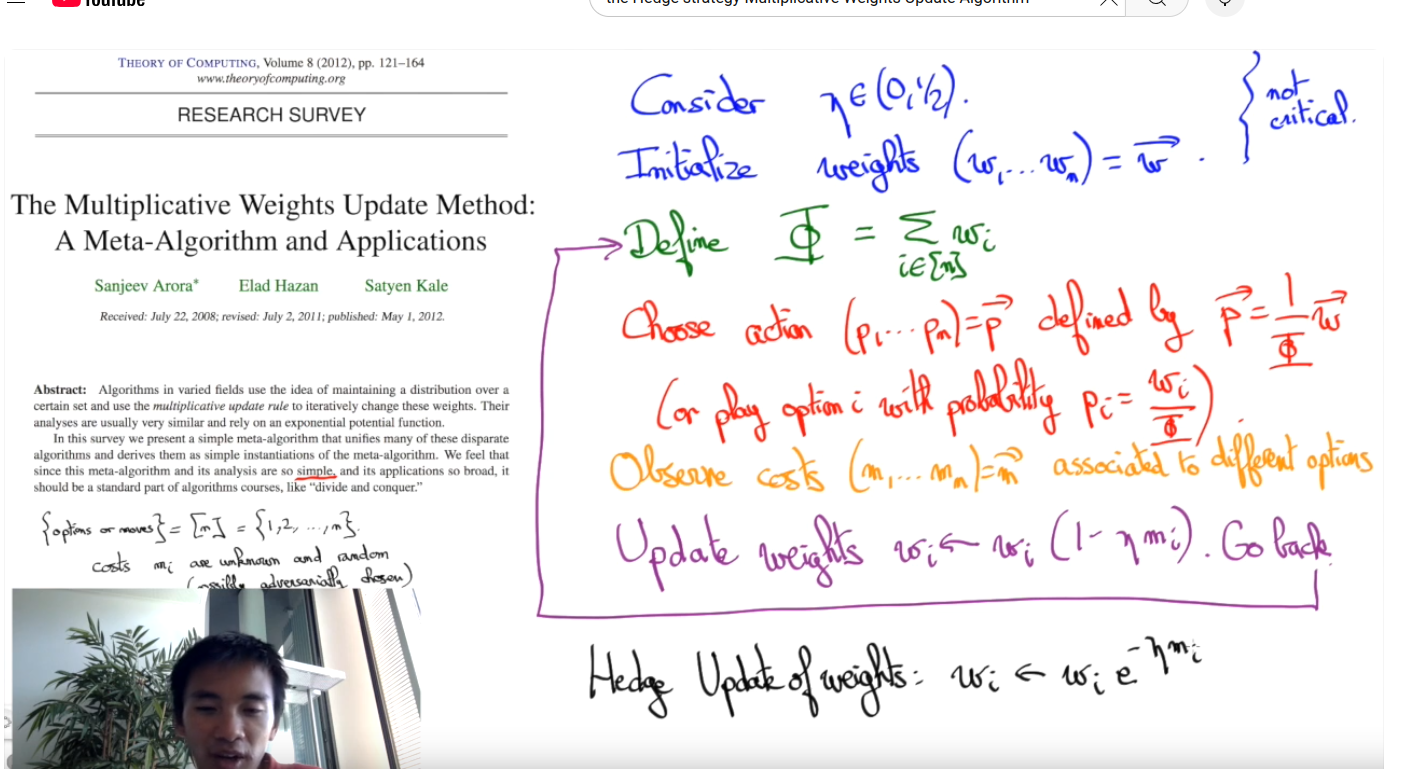 YouTube
the Hedge strategy Multiplicative Weights Update Algorithm
THEORY OF COMPUTING, Volume 8 (2012), pp. 121–164
www.theoryofcomputing.org
RESEARCH SURVEY
The Multiplicative Weights Update Method:
A Meta-Algorithm and Applications
Sanjeev Arora* Elad Hazan Satyen Kale
Received: July 22, 2008; revised: July 2, 2011; published: May 1, 2012.
Abstract: Algorithms in varied fields use the idea of maintaining a distribution over a
certain set and use the multiplicative update rule to iteratively change these weights. Their
analyses are usually very similar and rely on an exponential potential function.
In this survey we present a simple meta-algorithm that unifies many of these disparate
algorithms and derives them as simple instantiations of the meta-algorithm. We feel that
since this meta-algorithm and its analysis are so simple, and its applications so broad, it
should be a standard part of algorithms courses, like “divide and conquer.”
{options or moves} = [n] = {1,2, ..., n}.
costs mᵢ are unknown and random
(possibly adversarially chosen)
Consider η ∈ (0, ½).
Initialize weights (w₁, ... wₙ) = w⃗ .
} not
critical.
Define Φ = Σ wᵢ
i∈[n]
Choose action (p₁ ... pₙ) = p⃗ defined by p⃗ = 1/Φ w⃗
(or play option i with probability pᵢ = wᵢ/Φ).
Observe costs (m₁ ... mₙ) = m⃗ associated to different options
Update weights wᵢ ← wᵢ (1 - η mᵢ). Go back
Hedge Update of weights: wᵢ ← wᵢ e^-ηmᵢ